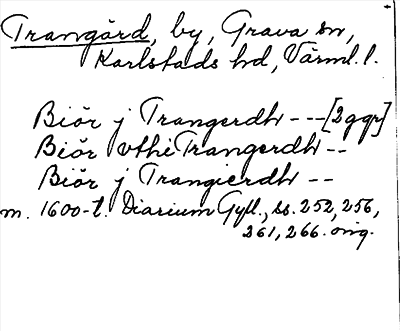 Trangärd, by, Grava sn,
Karlstads hd, Värml. l.
Biör j Trangerdh --- [2 ggr]
Biör vthi Trangerdh --
Biör j Trangierdh --
m. 1600-t. Diarium Gyll., ss. 252, 256,
261, 266. orig.